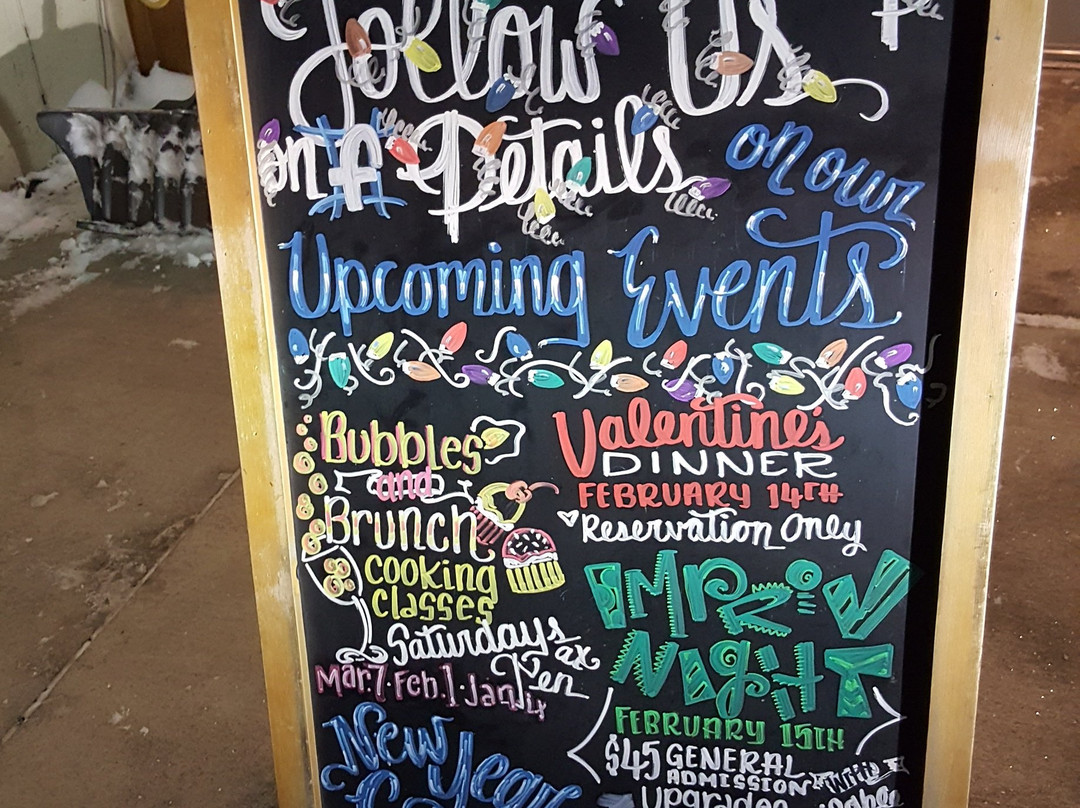 Follow Us
on f Details
on our
Upcoming Events
Bubbles
and
Brunch
cooking
classes
Saturdays
at
Ten
Mar.7.Feb.1.Jan4
New Year
Valentine's
DINNER
FEBRUARY 14TH
Reservation Only
IMPRoV
NigHT
FEBRUARY 15TH
$45 GENERAL
ADMISSION